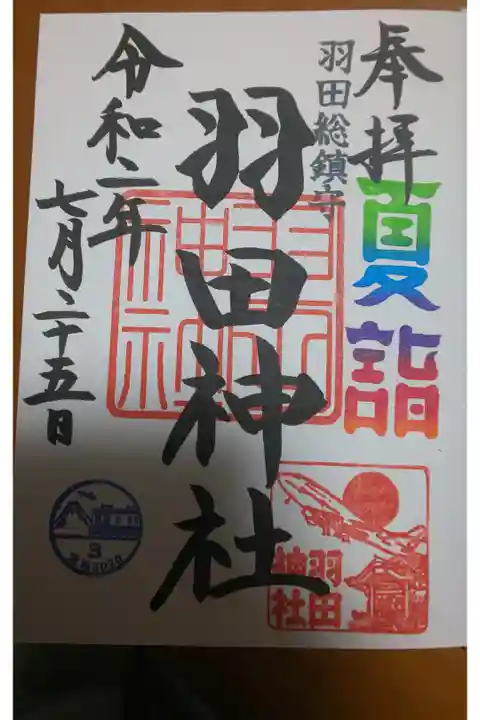 奉拝
夏詣
羽田総鎮守
羽田神社
令和二年
七月二十五日
羽田
神社
3
2020